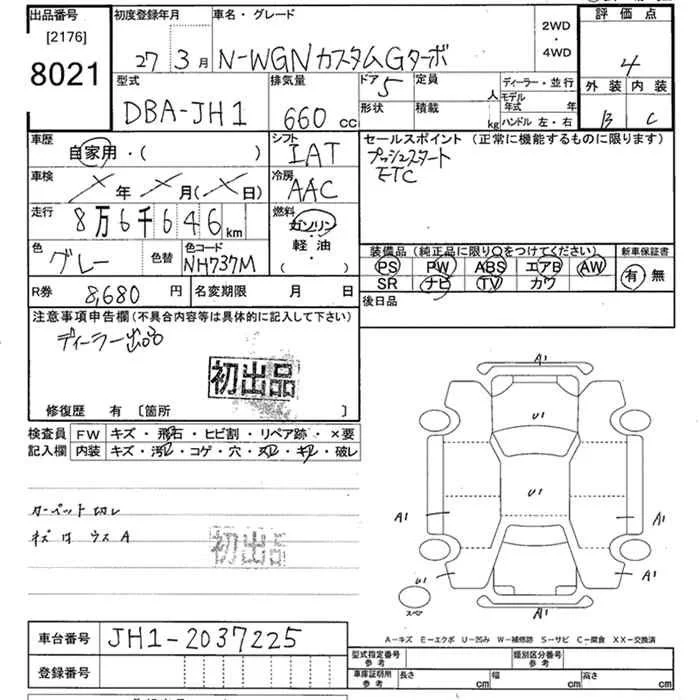 出品番号
[2176]
8021
初度登録年月
27年 3月
車名・グレード
N-WGNカスタムGターボ
2WD
・
4WD
評価点
4
外装 内装
B C
型式
DBA-JH1
排気量
660 cc
ドア 5
形状
定員 人
積載 kg
ディーラー・並行
モデル年式 年
ハンドル 左・右
車歴
自家用・( )
シフト
IAT
セールスポイント (正常に機能するものに限ります)
プッシュスタート
ETC
車検
年 月( 日)
冷房
AAC
走行
8万6千646km
燃料
ガソリン
軽油
・( )
色
グレー
色替
色コード
NH737M
装備品(純正品に限り○をつけてください)
PS PW ABS エアB AW
SR ナビ TV カワ
新車保証書
有 無
R券 8,680 円
名変期限 月 日
後日品
注意事項申告欄(不具合内容等は具体的に記入して下さい)
ディーラー出品
初出品
修復歴 有 [箇所 ]
検査員
記入欄
FW キズ・飛石・ヒビ割・リペア跡・×要
内装 キズ・汚レ・コゲ・穴・スレ・キレ・破レ
カーペット切レ
キズ凹 ウスA
初出品
A1
U1
U1
A1
A1
U1
A1
スペア
A1
A−キズ E−エクボ U−凹み W−補修跡 S−サビ C−腐食 XX−交換済
車台番号 JH1-2037225
登録番号
型式指定番号
参考
類別区分番号
参考
車庫証明用
参考
長さ cm 幅 cm 高さ cm